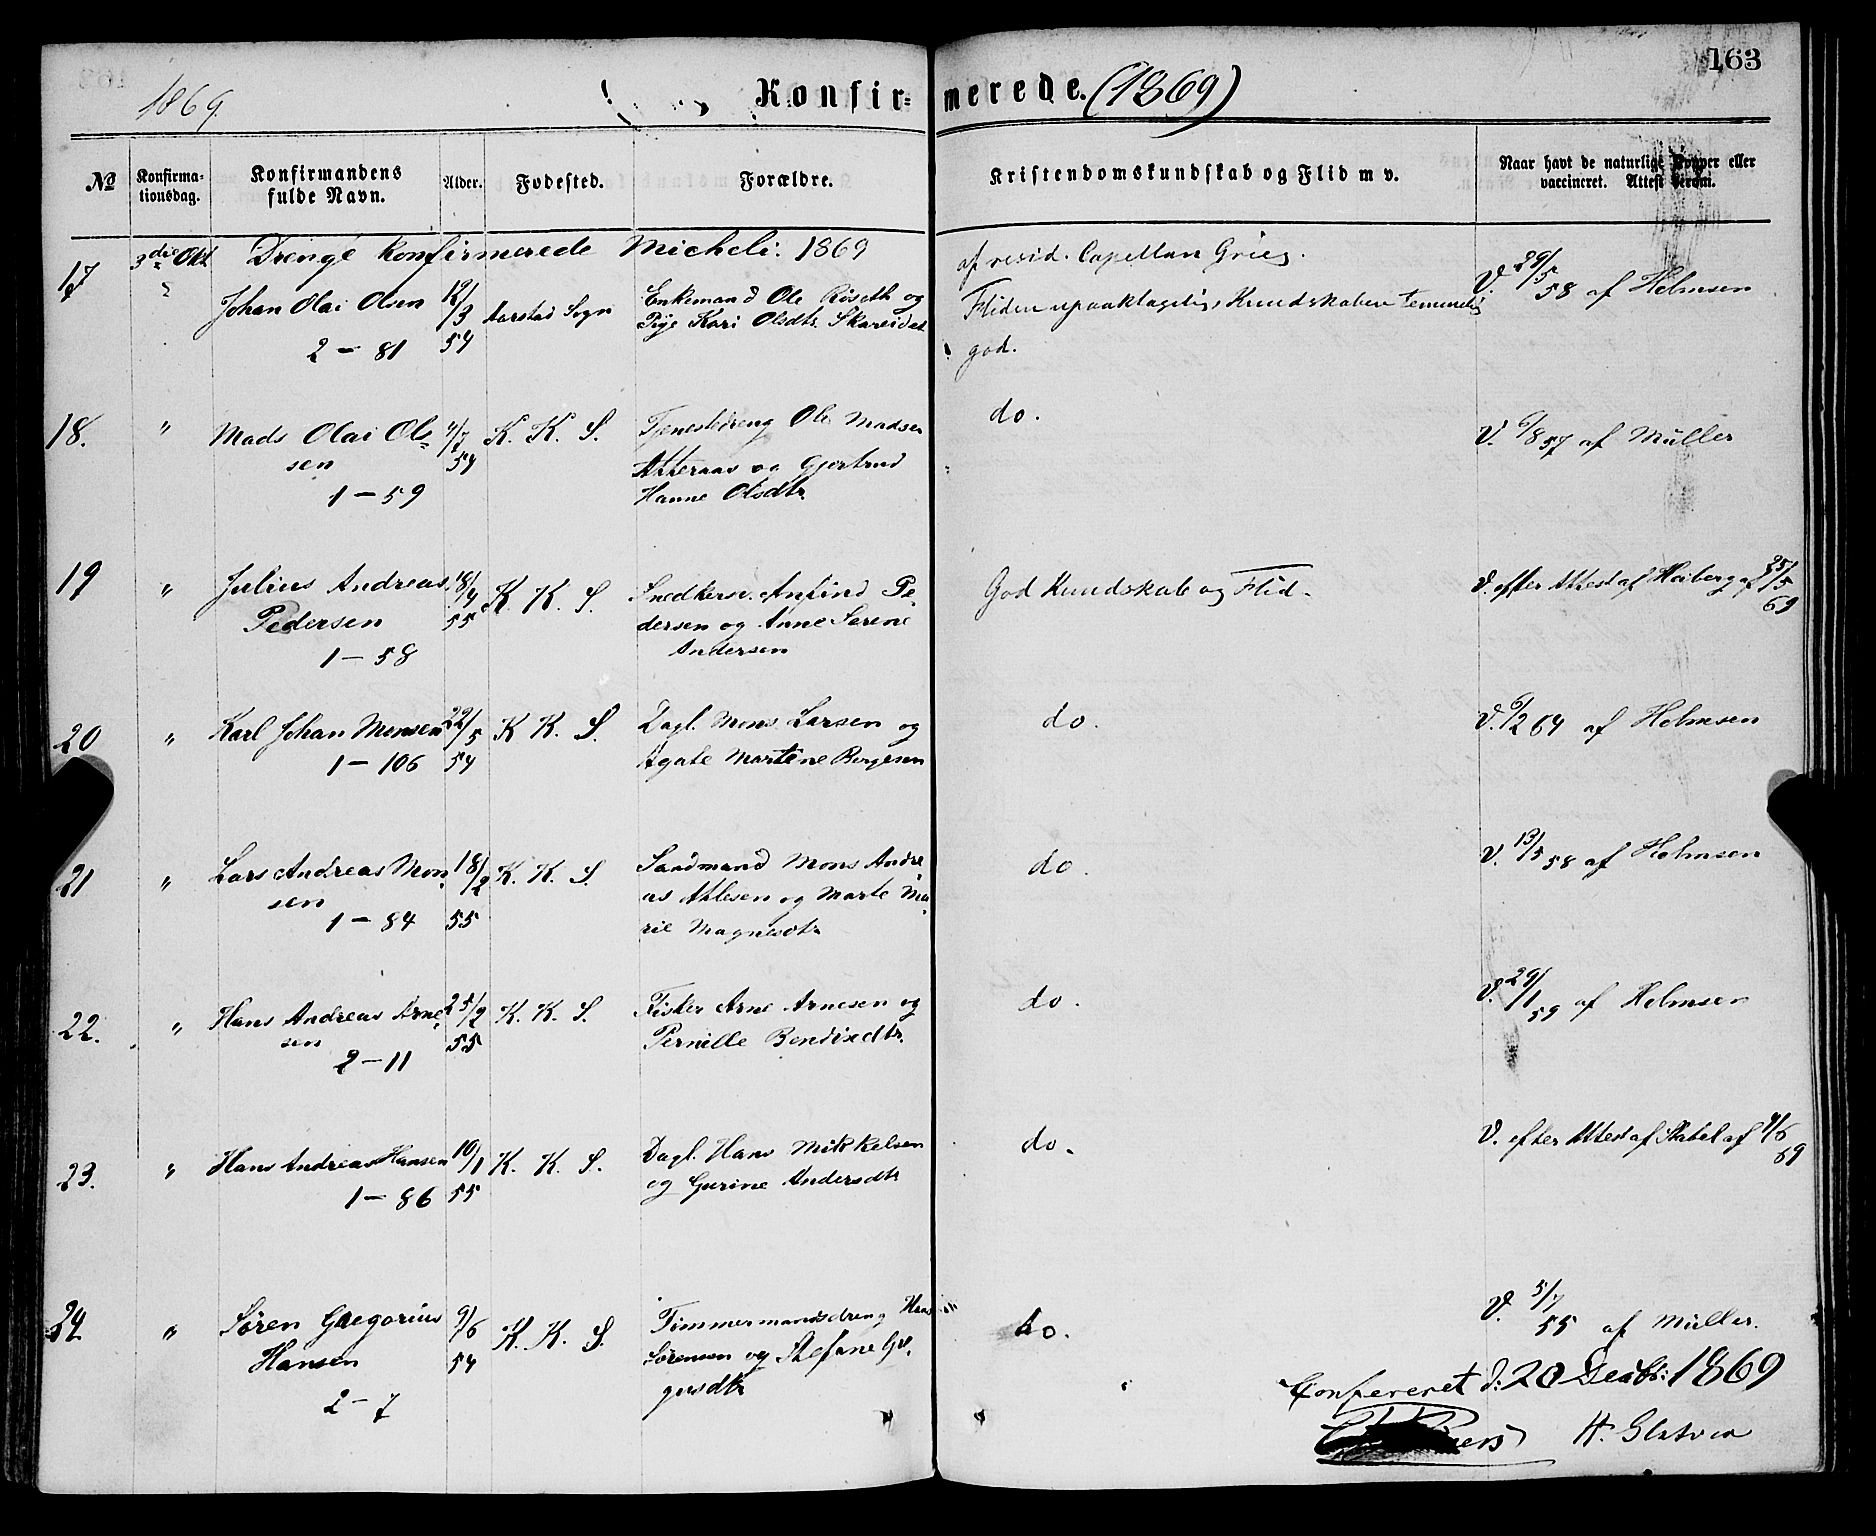 163
1869.
Konfir- merede. (1869)
№
Konfirma-
tionsdag.
Konfirmandens
fulde Navn.
Alder.
Fødested.
Forældre.
Kristendomskundskab og Flid m v.
Naar havt de naturlige Kopper eller
vaccineret. Attest derom.
3die Okt Drenge konfirmerede Micheli. 1869 af resid. Capellan Grieg.
17 Johan Olai Olsen 12/3 Aarstad Sogn Enkemand Ole Röseth og Fliden upaaklagelig, Kundskaben temmelig V. 29/5 58 af Holmsen
Pige Kari Olsdtr. Skareidet
2 - 81 54 god.
18. " Mads Olai Ol= 4/7 K. K. S. Tjenestedreng Ole Madsen do. V. 6/8 57 af Müller
sen 54 og Gjertrud
1 - 59 Hanne Olsdtr.
19 " Julius Andreas 18/4 K. K. S. Snedkersv. Anfind Pe- God Kundskab og Flid. V. efter Attest af Heiberg af 25/5
Pedersen 55 dersen og Anne Serene 69
1 - 58 Andersen
20 " Karl Johan Monsen 22/5 K K. S. Dagl. Mons Larsen og do. V. 6/2 64 af Holmsen
1 - 106 54 Agate Martene Borgesen
21 " Lars Andreas Mon- 18/2 K. K. S. Mons Andre do. V. 13/5 58 af Holmsen
sen as Atlesen og Marte Ma-
1 - 84 55 rie Magnesdtr
22. " Hans Andreas Arne- 25/2 K. K. S. Fisker Arne Arnesen og do. V. 29/1 59 af Holmsen
sen 55 Pernille Bendixdtr.
2 - 11
23. " Hans Andreas Hansen 10/1 K. K. S. Dagl. Hans Mikkelsen do. V. efter Attest af Stabel af 4/6
1 - 86 55 og Gurine Andersdtr 69
24. " Sören Gregorius 9/6 K. K. S. Timmermandsdreng Hans do. V. 5/7
Hansen 54 Sörensen og Stefane 55 af Müller.
2 - 7 gersdtr
Confereret d: 20 Decbr: 1869